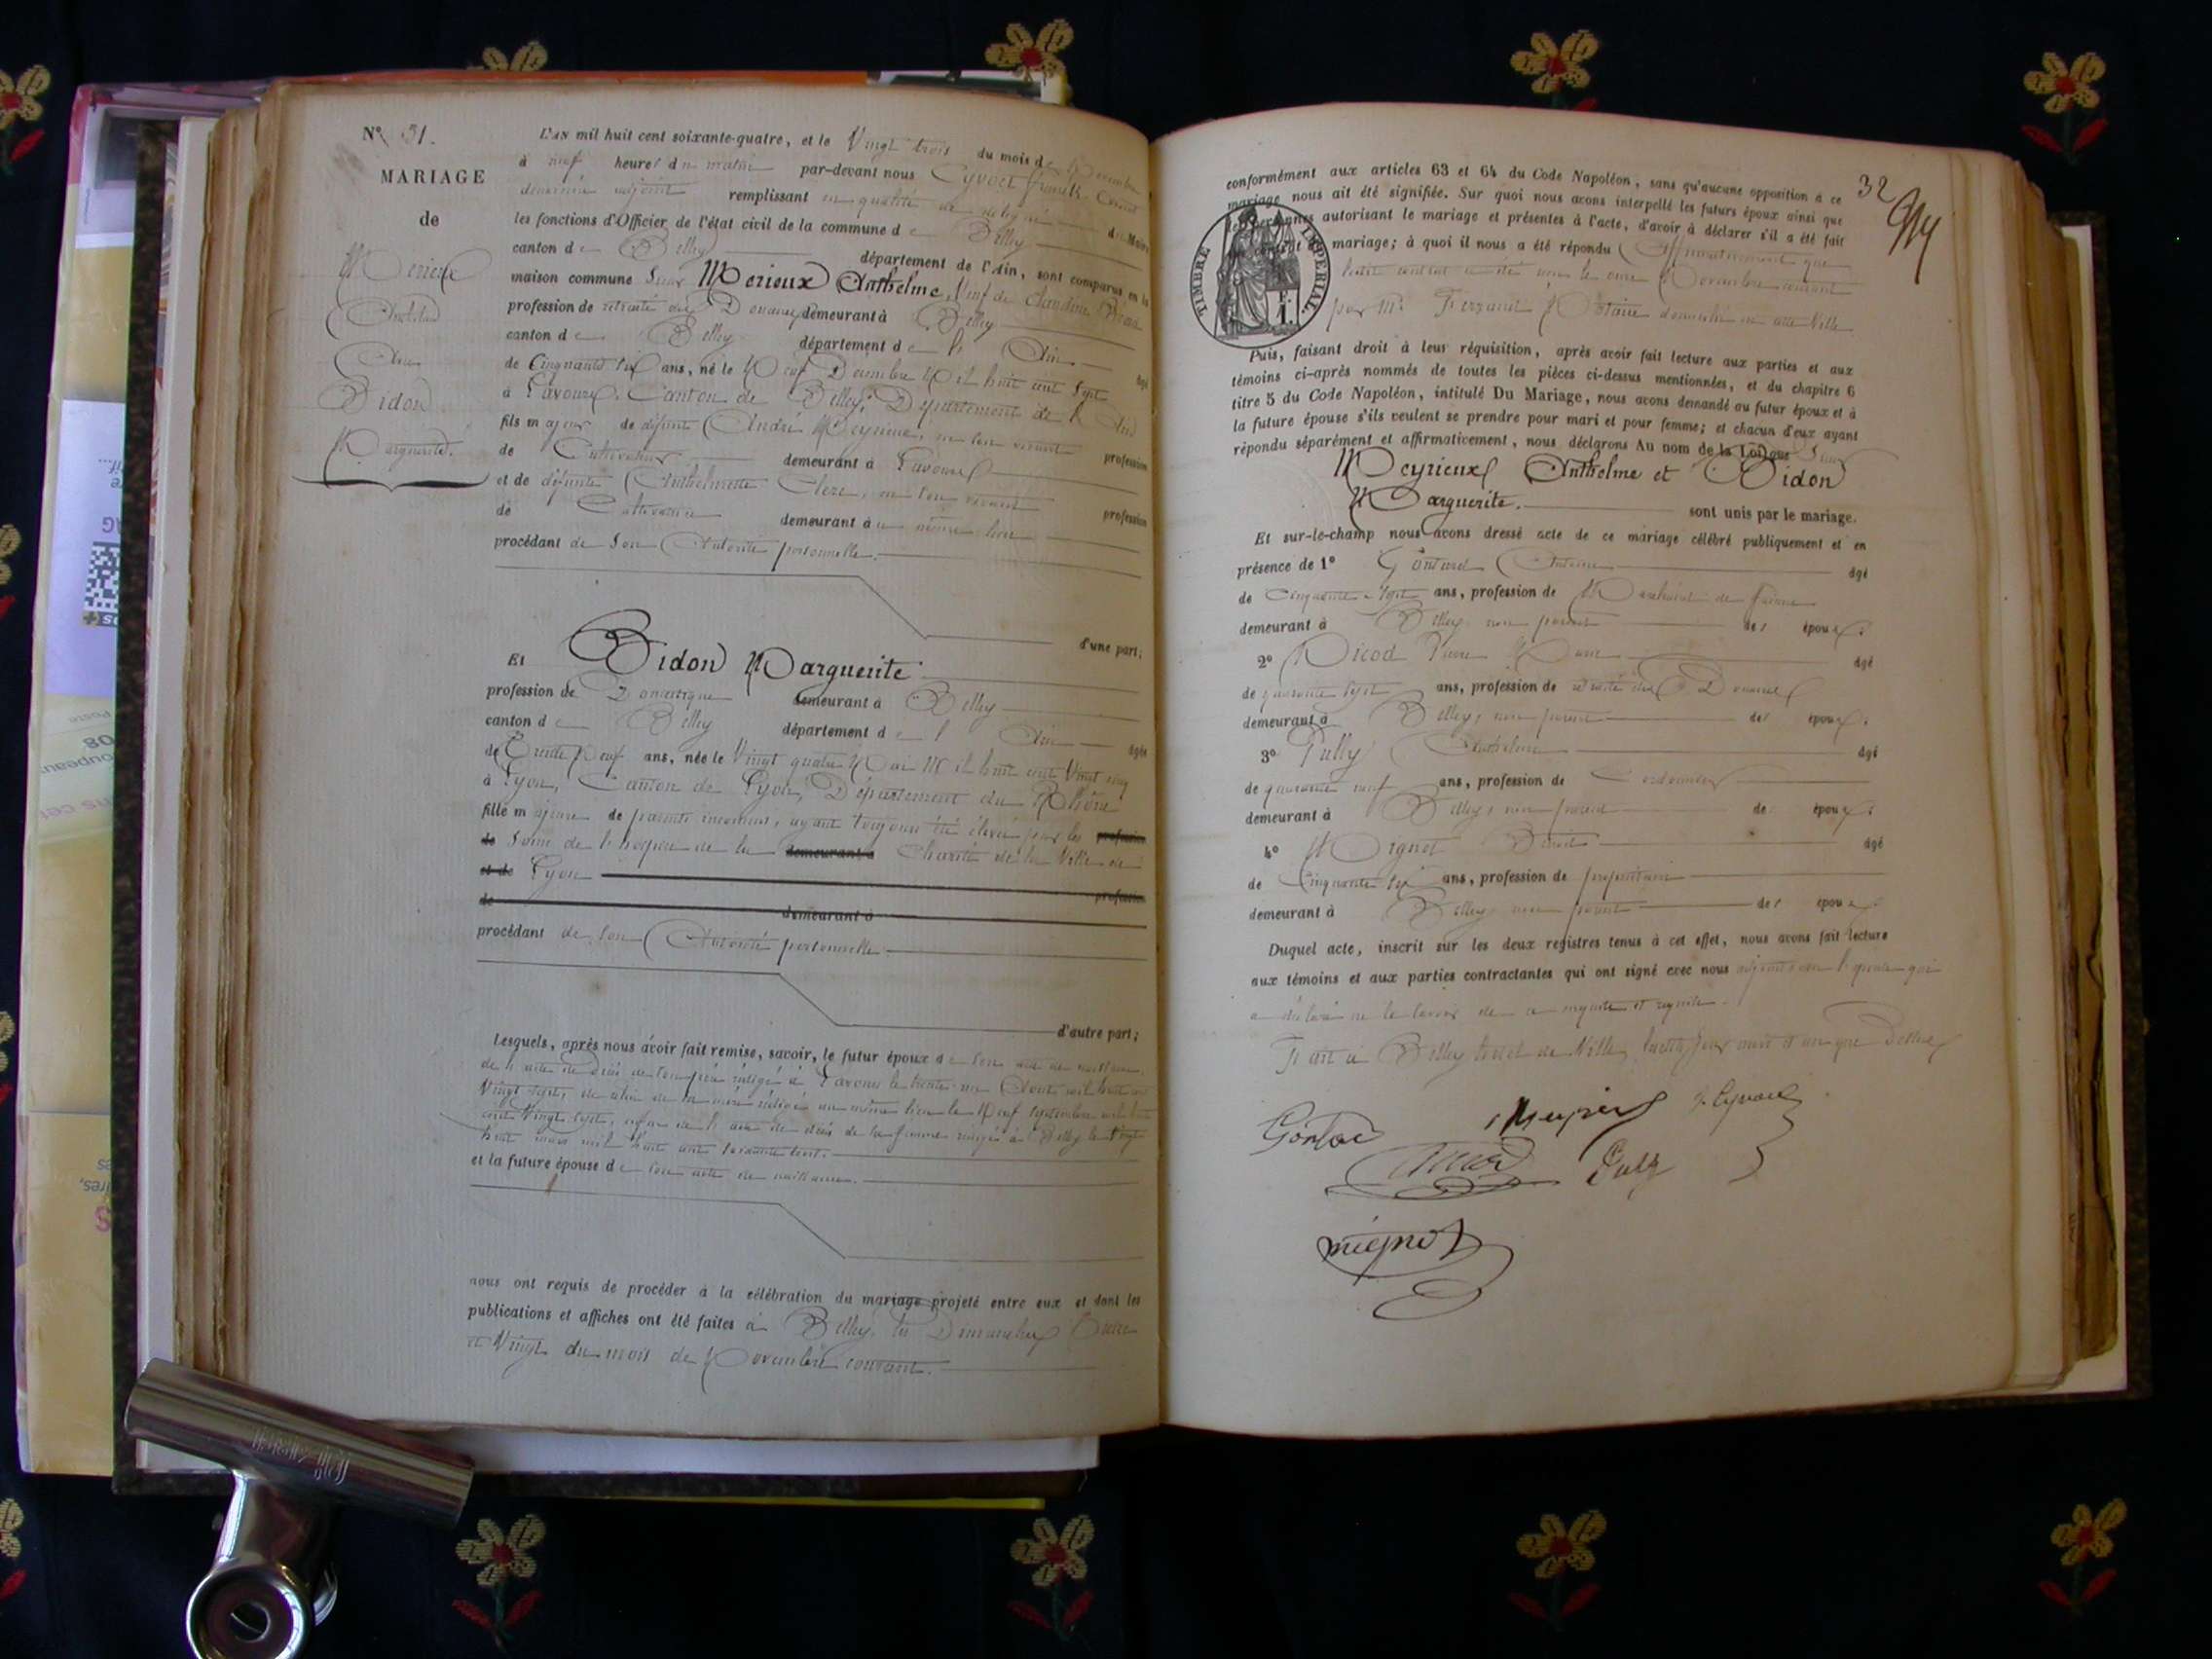 N° 31.
MARIAGE
de
Merieux
Anthelme
Avec
Bidon
Marguerite.
L'AN mil huit cent soixante-quatre, et le Vingt trois du mois de Novembre
à neuf heures du matin par-devant nous Cyvoct
deuxième adjoint remplissant en qualité de délégué du Maire
les fonctions d'Officier de l'état civil de la commune de Belley
canton de Belley département de l'Ain, sont comparus en la
maison commune Sieur Merieux Anthelme, Veuf de Claudine
profession de retraité des Douanes demeurant à Belley
canton de Belley département de l'Ain âgé
de Cinquante six ans, né le Neuf Décembre Mil huit cent Sept
à Lavours, Canton de Belley, Département de l'Ain
fils majeur de défunt André Meyrieux, en son vivant profession
de Cultivateur demeurant à Lavours
et de défunte Anthelmette Clerc, en son vivant profession
de Cultivatrice demeurant au même lieu
procédant de Son Autorité personnelle.
d'une part;
Et Bidon Marguerite
profession de Domestique demeurant à Belley
canton de Belley département de l'Ain âgée
de Trente Neuf ans, née le Vingt quatre Mai Mil huit cent Vingt cinq
à Lyon, Canton de Lyon, Département du Rhône
fille majeure de parents inconnus, ayant toujours été élevée par les profession
de Soins de l'hospice de la demeurant à Charité de la Ville de
et de Lyon
de profession
demeurant à
procédant de son Autorité personnelle.
d'autre part;
Lesquels, après nous avoir fait remise, savoir, le futur époux de Son acte de naissance,
de l'acte de décès de son père rédigé à Lavours le trente un Août mil huit cent
Vingt sept, de celui de sa mère rédigé au même lieu le Neuf septembre mil huit
cent Vingt sept, enfin de l'acte de décès de sa femme rédigé à Belley le Vingt
huit mars mil huit cent soixante trois.
et la future épouse de Son acte de naissance.
nous ont requis de procéder à la célébration du mariage projeté entre eux et dont les
publications et affiches ont été faites à Belley, les Dimanches Treize
et Vingt du mois de Novembre courant.
32
conformément aux articles 63 et 64 du Code Napoléon, sans qu'aucune opposition à ce
mariage nous ait été signifiée. Sur quoi nous avons interpellé les futurs époux ainsi que
les personnes autorisant le mariage et présentes à l'acte, d'avoir à déclarer s'il a été fait
contrat de mariage; à quoi il nous a été répondu Affirmativement que
TIMBRE IMPÉRIAL.
contrat a été le onze Novembre courant
par Me Ferrand Notaire domicilié en cette Ville
Puis, faisant droit à leur réquisition, après avoir fait lecture aux parties et aux
témoins ci-après nommés de toutes les pièces ci-dessus mentionnées, et du chapitre 6
titre 5 du Code Napoléon, intitulé Du Mariage, nous avons demandé au futur époux et à
la future épouse s'ils veulent se prendre pour mari et pour femme; et chacun d'eux ayant
répondu séparément et affirmativement, nous déclarons Au nom de la Loi que Sieur
Meyrieux Anthelme et Bidon
Marguerite. sont unis par le mariage.
Et sur-le-champ nous avons dressé acte de ce mariage célébré publiquement et en
présence de 1° Gontard Antoine âgé
de Cinquante Sept ans, profession de Marchand de farine
demeurant à Belley non parent des époux.
2° Nicod Pierre Marie âgé
de quarante Sept ans, profession de retraité des Douanes
demeurant à Belley, non parent des époux.
3° Pully Anthelme âgé
de quarante neuf ans, profession de Cordonnier
demeurant à Belley, non parent des époux.
4° Mignot Benoît âgé
de Cinquante six ans, profession de propriétaire
demeurant à Belley non parent des époux.
Duquel acte, inscrit sur les deux registres tenus à cet effet, nous avons fait lecture
aux témoins et aux parties contractantes qui ont signé avec nous adjoint non l'épouse qui
a déclaré ne le savoir de ce enquise et requise.
Fait à Belley hôtel de Ville, lesdits jour mois et an que Dessus
mignot